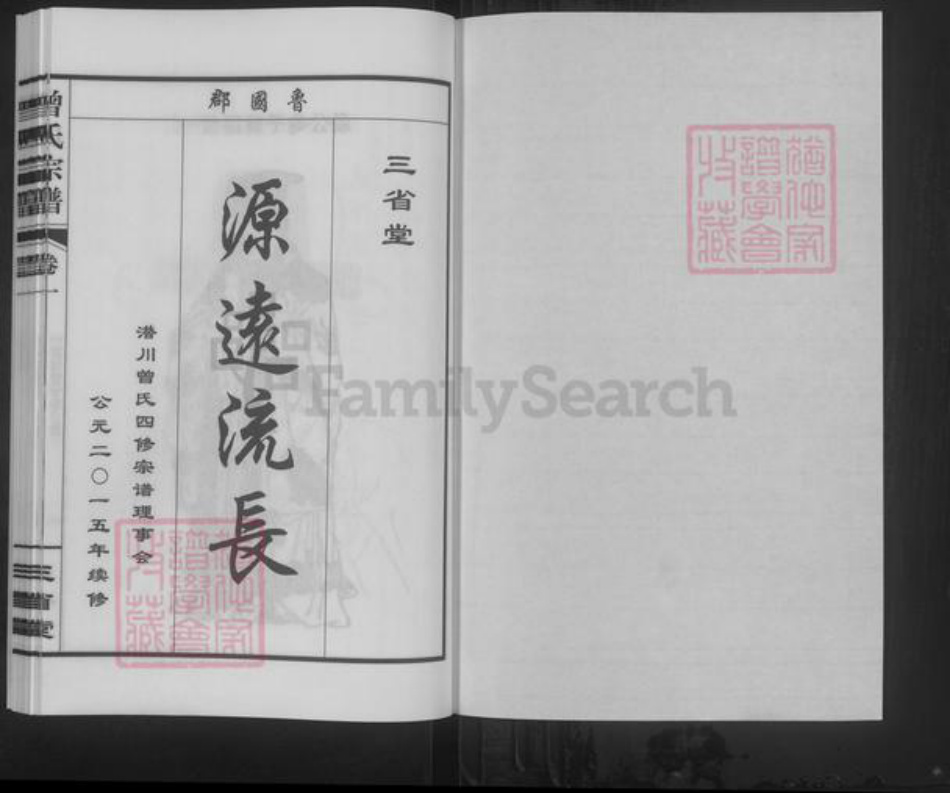 魯國郡
三省堂
源遠流長
潜川曾氏四修宗谱理事会
公元二〇一五年续修
曾氏宗譜
卷一
三省堂
FamilySearch
譜學會
藏
譜學會
藏